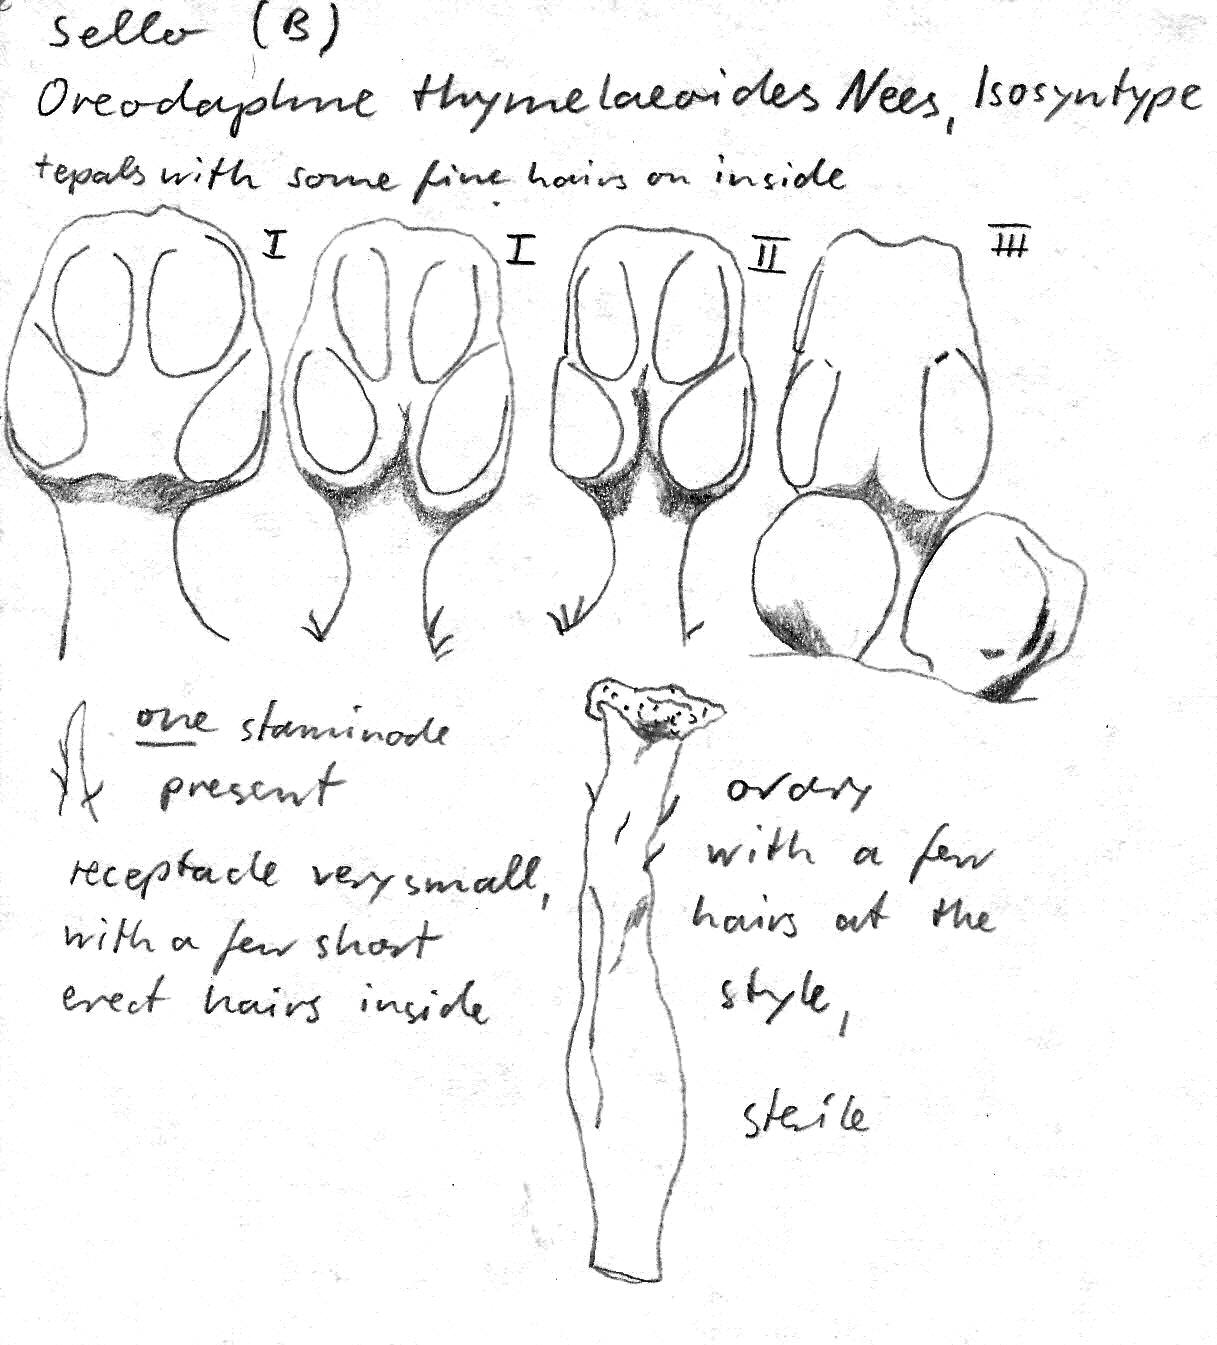 Sello (B)
Oreodaphne thymelaeoides Nees, Isosyntype
tepals with some fine hairs on inside
I I II III
one staminode
present
receptacle very small,
with a few short
erect hairs inside
ovary
with a few
hairs at the
style,
sterile